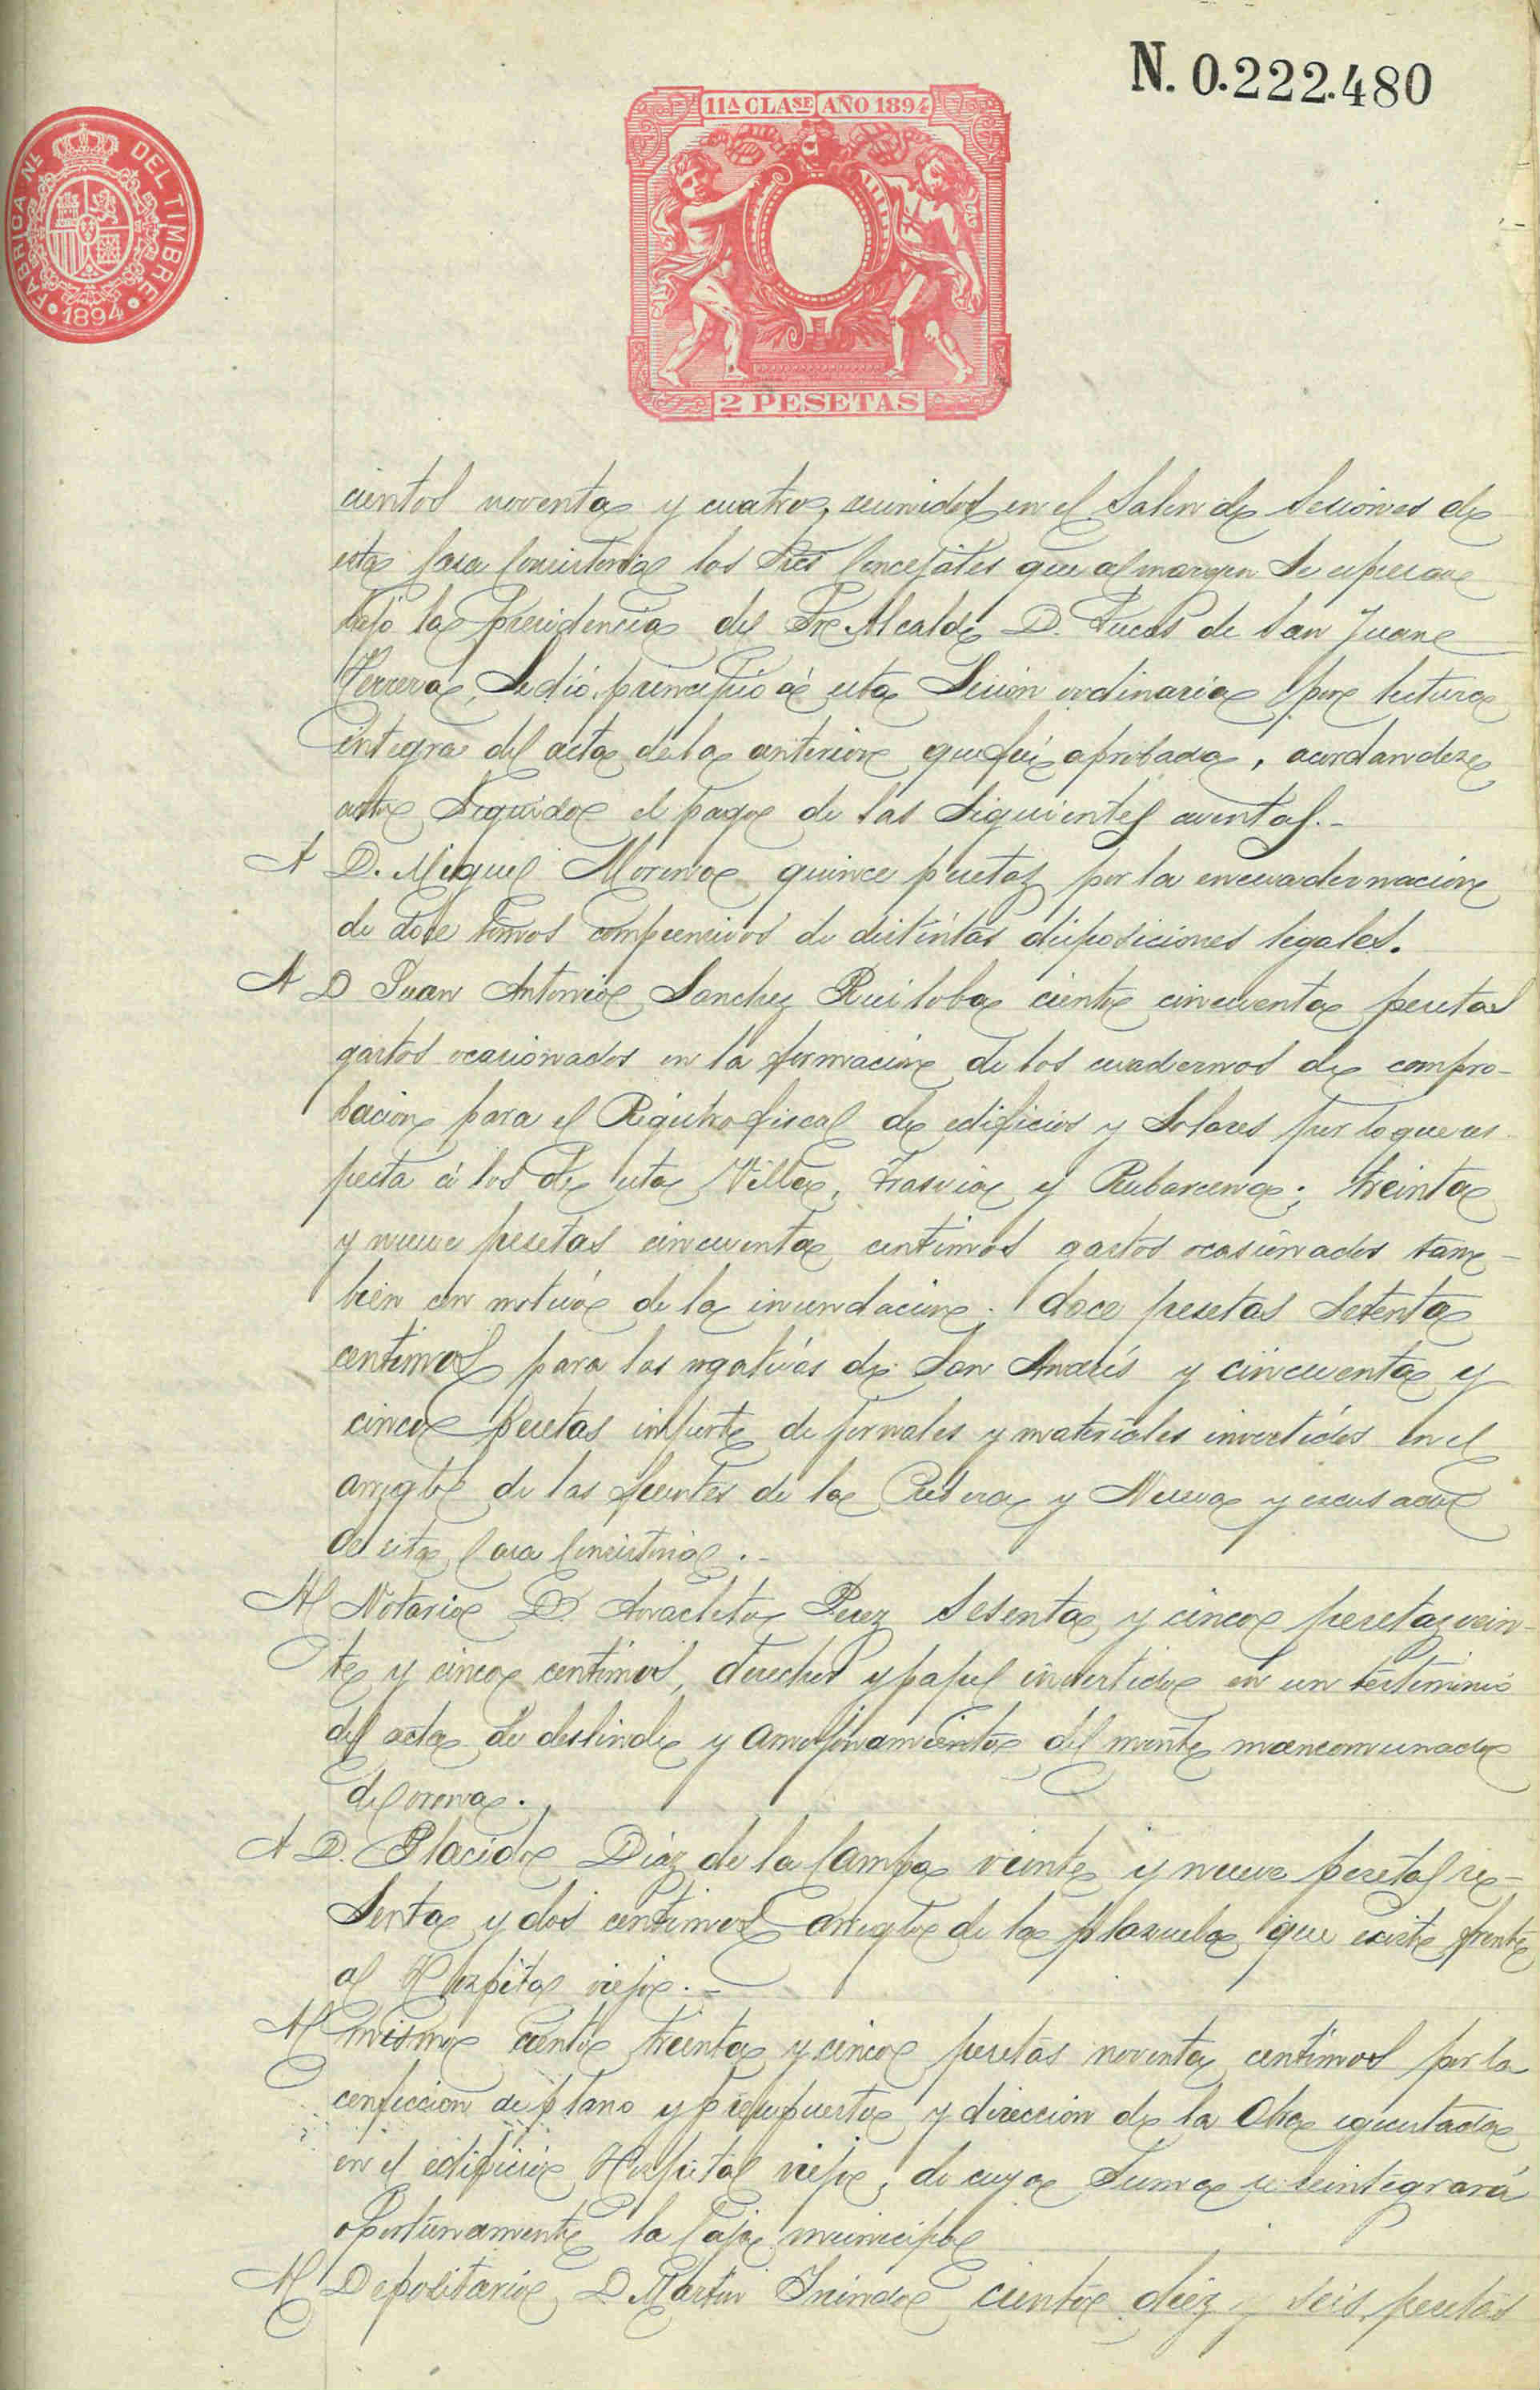 N. 0.222.480
11A CLASE AÑO 1894
FABRICA NL. DEL TIMBRE
1894
2 PESETAS
cientos noventa y cuatro, reunidos en el Salon de Sesiones de
esta Casa Consistorial los Sres Concejales que al margen se expresan
bajo la Presidencia del Sr Alcalde D. Lucas de San Juan
Herrera, Se dió principio á esta Sesion ordinaria por lectura
integra del acta de la anterior que fué aprobada, acordandose
acto Seguido el pago de las Siguientes cuentas.-
A D. Miguel Moreno quince pesetas por la encuadernacion
de doce tomos comprensivos de distintas disposiciones legales.
A D Juan Antonio Sanchez Ruiloba ciento cincuenta pesetas
gastos ocasionados en la formacion de los cuadernos de compro-
bacion para el Registro fiscal de edificios y Solares por lo que res-
pecta á los de esta Villa, Trasvia y Rubarcena; treinta
y nueve pesetas cincuenta centimos gastos ocasionados tam-
bien con motivo de la inundacion; doce pesetas Setenta
centimos para las rogativas de San Andrés y cincuenta y
cinco pesetas importe de jornales y materiales invertidos en el
arreglo de las fuentes de la y Nueva y escusado
de esta Casa Consistorial.-
Al Notario D. Anacleto Perez Sesenta y cinco pesetas vein-
te y cinco centimos, derechos y papel invertido en un testimonio
del acta de deslinde y amojonamiento del monte mancomunado
de Corona.
A D. Placido Diaz de la Campa veinte y nueve pesetas se-
senta y dos centimos arreglo de la plazuela que existe frente
al Hospital viejo.-
Al mismo ciento treinta y cinco pesetas noventa centimos por la
confeccion de plano y presupuesto y direccion de la Obra ejecutada
en el edificio Hospital viejo, de cuya Suma se reintegrará
oportunamente la Caja municipal
Al Depositario D Martin ciento diez y seis pesetas